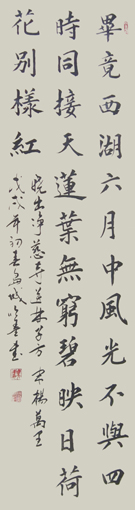 畢竟西湖六月中風光不與四
時同接天蓮葉無窮碧映日荷
花別樣紅
曉出淨慈寺送林子方 宋楊萬里
戊戌年初春